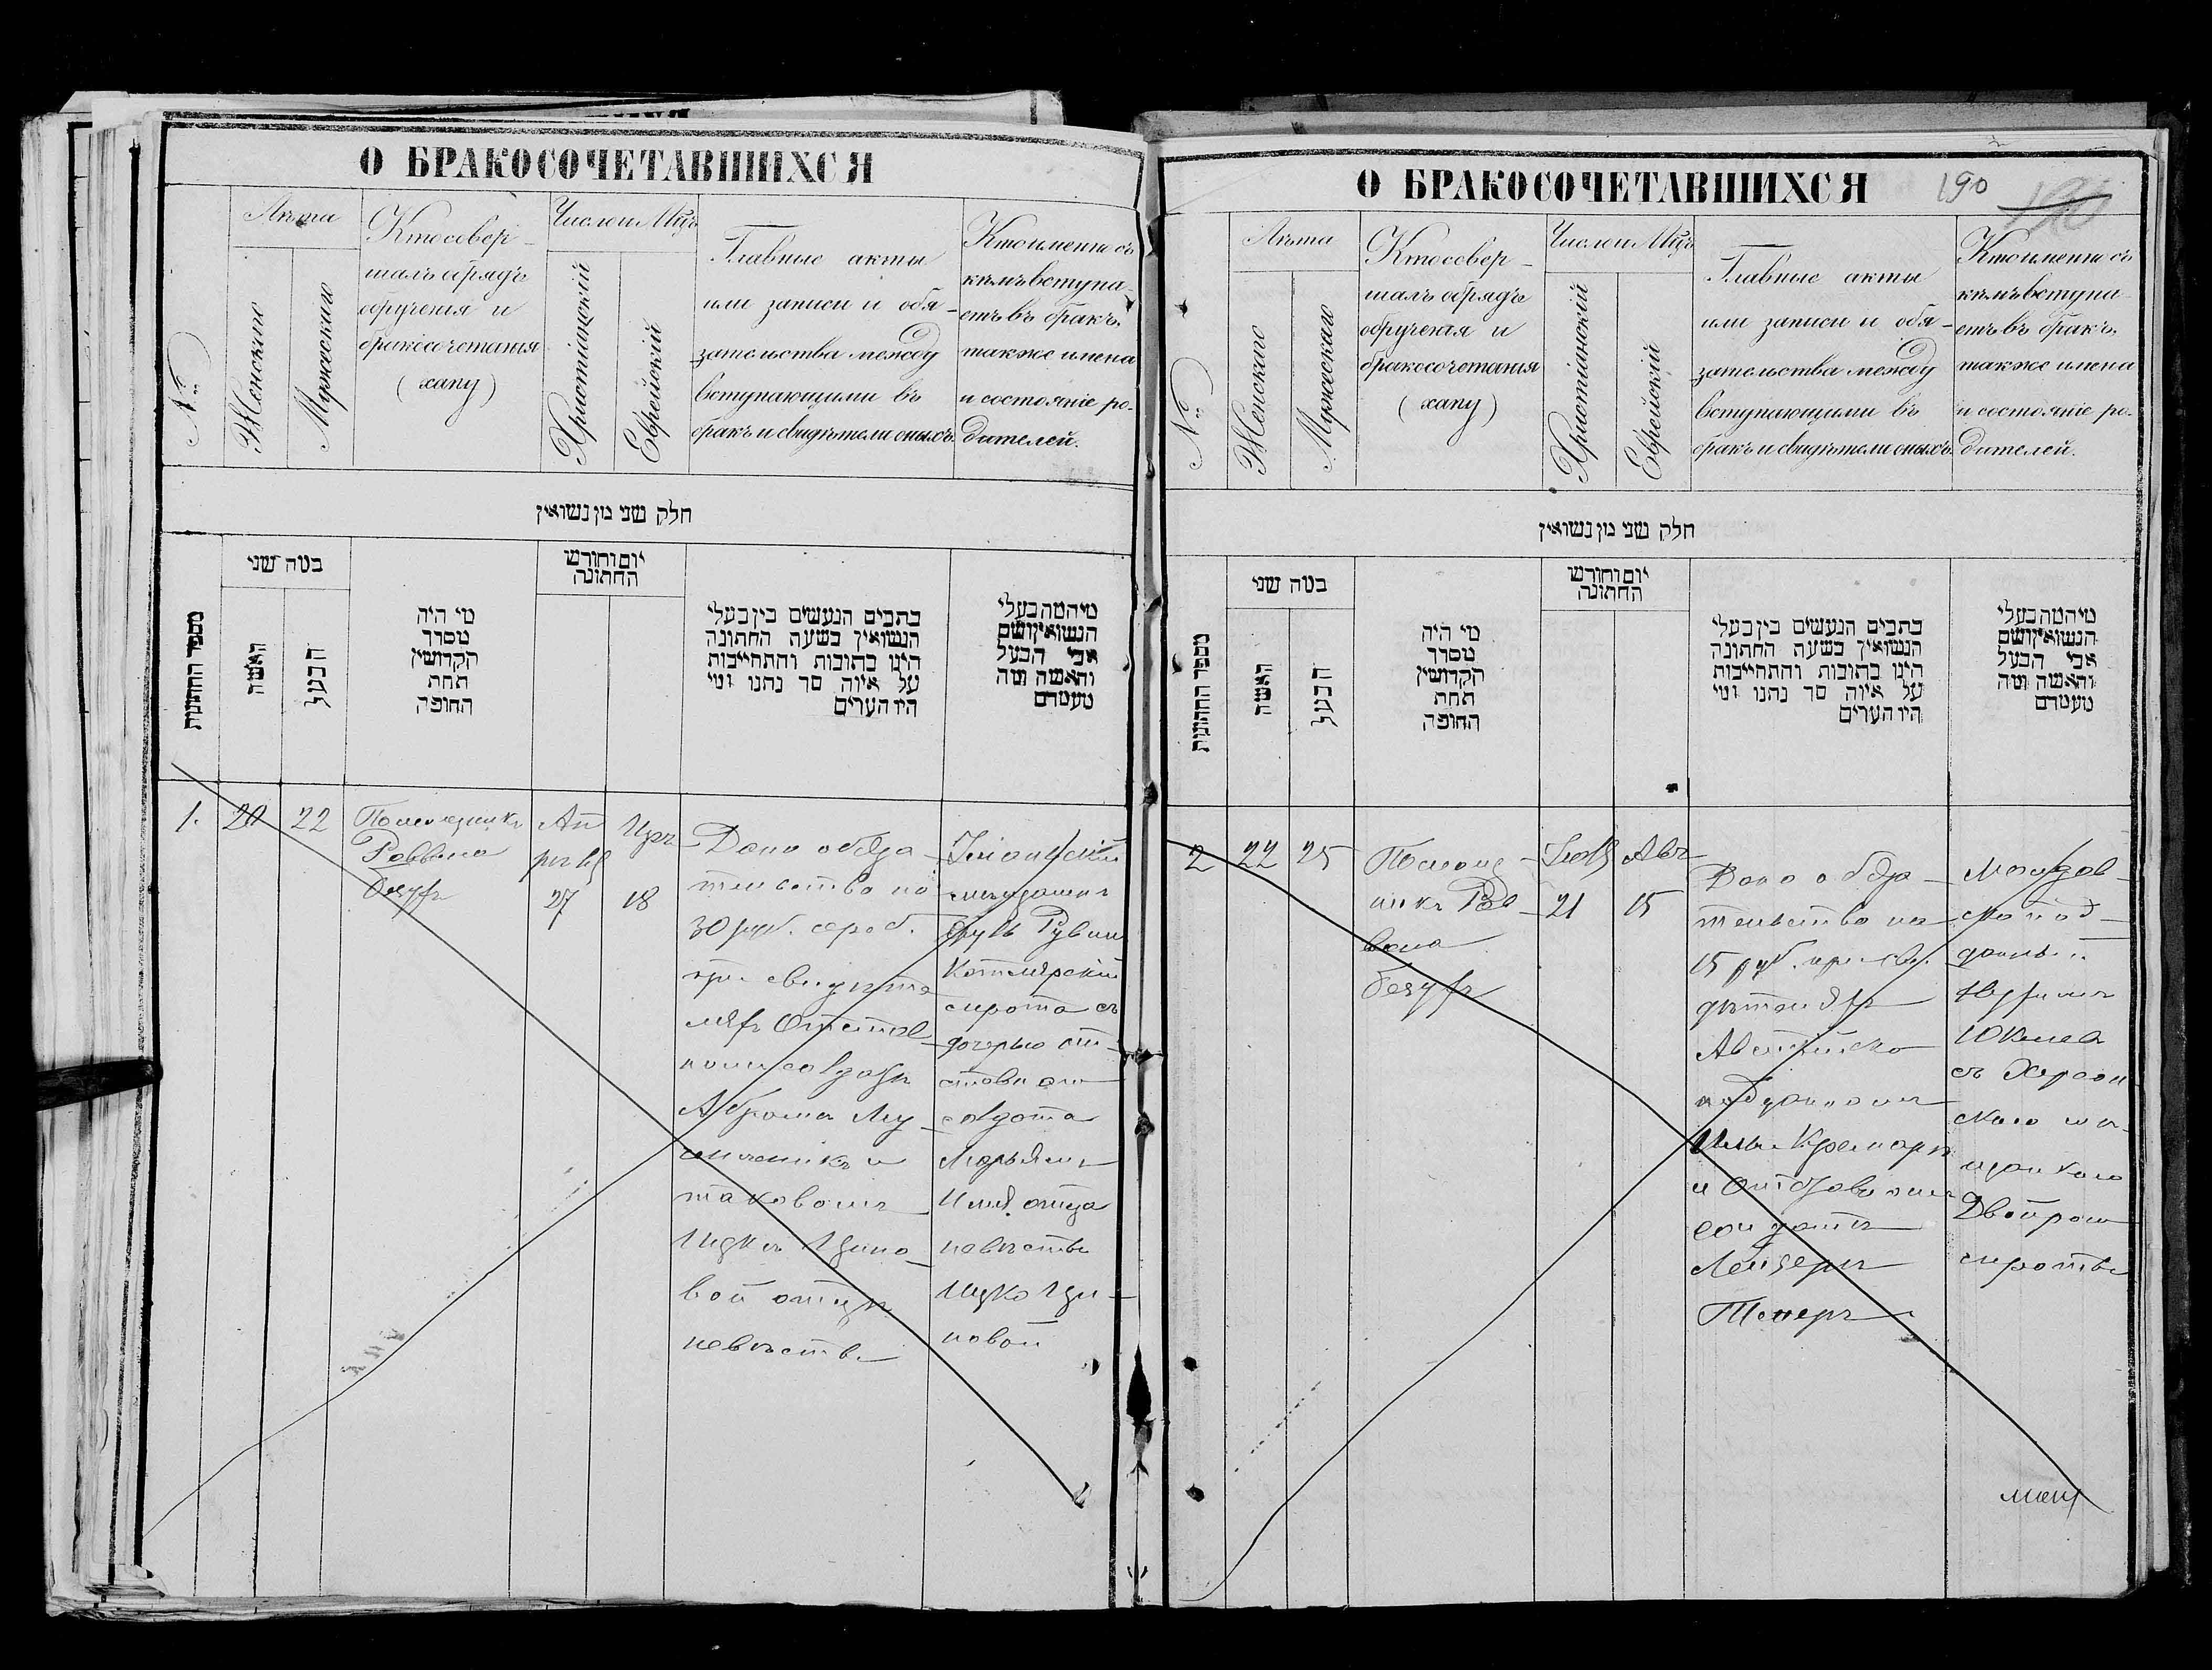 О БРАКОСОЧЕТАВШИХСЯ
№
Лѣта
Женскаго
Мужескаго
Кто совер-
шалъ обрядъ
обрученія и
бракосочетанія
(хапу)
Число и Мѣцъ
Христіанскій
Еврейскій
Главные акты
или записи и обя-
зательства между
вступающими въ
бракъ и свидѣтели оныхъ.
Кто именно съ
кѣмъ вступа-
етъ въ бракъ.
также имена
и состояніе ро-
дителей.
חלק שני מן נשואין
מספר החתונות
כמה שני
האשה
הבעל
מי היה
מסדר
הקדושין
תחת
החופה
יום וחודש
החתונה
כתבים הנעשים בין בעלי
הנשואין בשעה החתונה
היינו כתובות והתחייבות
על איזה סך נתנו ומי
היו העדים
מי המה בעלי
הנשואין ושם
אבי הבעל
והאשה ומה
מעמדם
1.
20
22
Помощникъ
Раввина
Апрѣль
27
Ияръ
18
Дано обяза-
тельство на
30 руб. сереб.
при свидѣте-
ляхъ Отстав-
номъ солдатѣ
Абрамъ
таковомъ
Ицкъ
вой отцѣ
невѣсты
мѣщанинъ
Рувин
Котлярскій
сирота съ
дочерью от-
ставнаго
солдата
Марьямъ
Имя отца
невѣсты
Ицко
новой
О БРАКОСОЧЕТАВШИХСЯ
190
№
Лѣта
Женскаго
Мужескаго
Кто совер-
шалъ обрядъ
обрученія и
бракосочетанія
(хапу)
Число и Мѣцъ
Христіанскій
Еврейскій
Главные акты
или записи и обя-
зательства между
вступающими въ
бракъ и свидѣтели оныхъ.
Кто именно съ
кѣмъ вступа-
етъ въ бракъ.
также имена
и состояніе ро-
дителей.
חלק שני מן נשואין
מספר החתונות
כמה שני
האשה
הבעל
מי היה
מסדר
הקדושין
תחת
החופה
יום וחודש
החתונה
כתבים הנעשים בין בעלי
הנשואין בשעה החתונה
היינו כתובות והתחייבות
על איזה סך נתנו ומי
היו העדים
מי המה בעלי
הנשואין ושם
אבי הבעל
והאשה ומה
מעמדם
2
22
25
Помощ-
никъ Рав-
вина
Іюль
21
Авъ
15
Дано обяза-
тельство на
15 руб. при сви-
дѣтеляхъ
Австрійско
подданномъ
Крамаръ
и Отставномъ
солдатѣ
Лейзеръ
Молдав-
ско под-
данный
съ Херсон-
скою мѣ-
щанкою
Двойрою
сироты